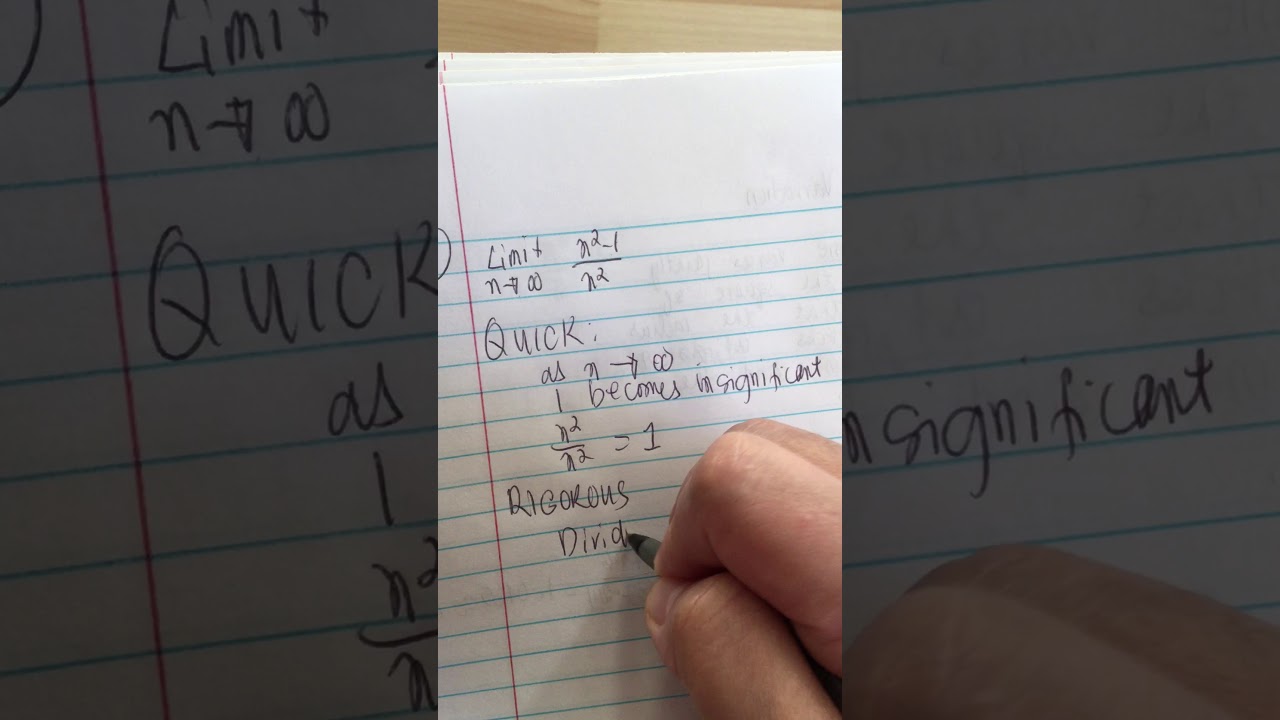 Limit n²-1
n→∞ n²
QUICK:
as n → ∞
1 becomes insignificant
n²
n² = 1
RIGOROUS
Divid